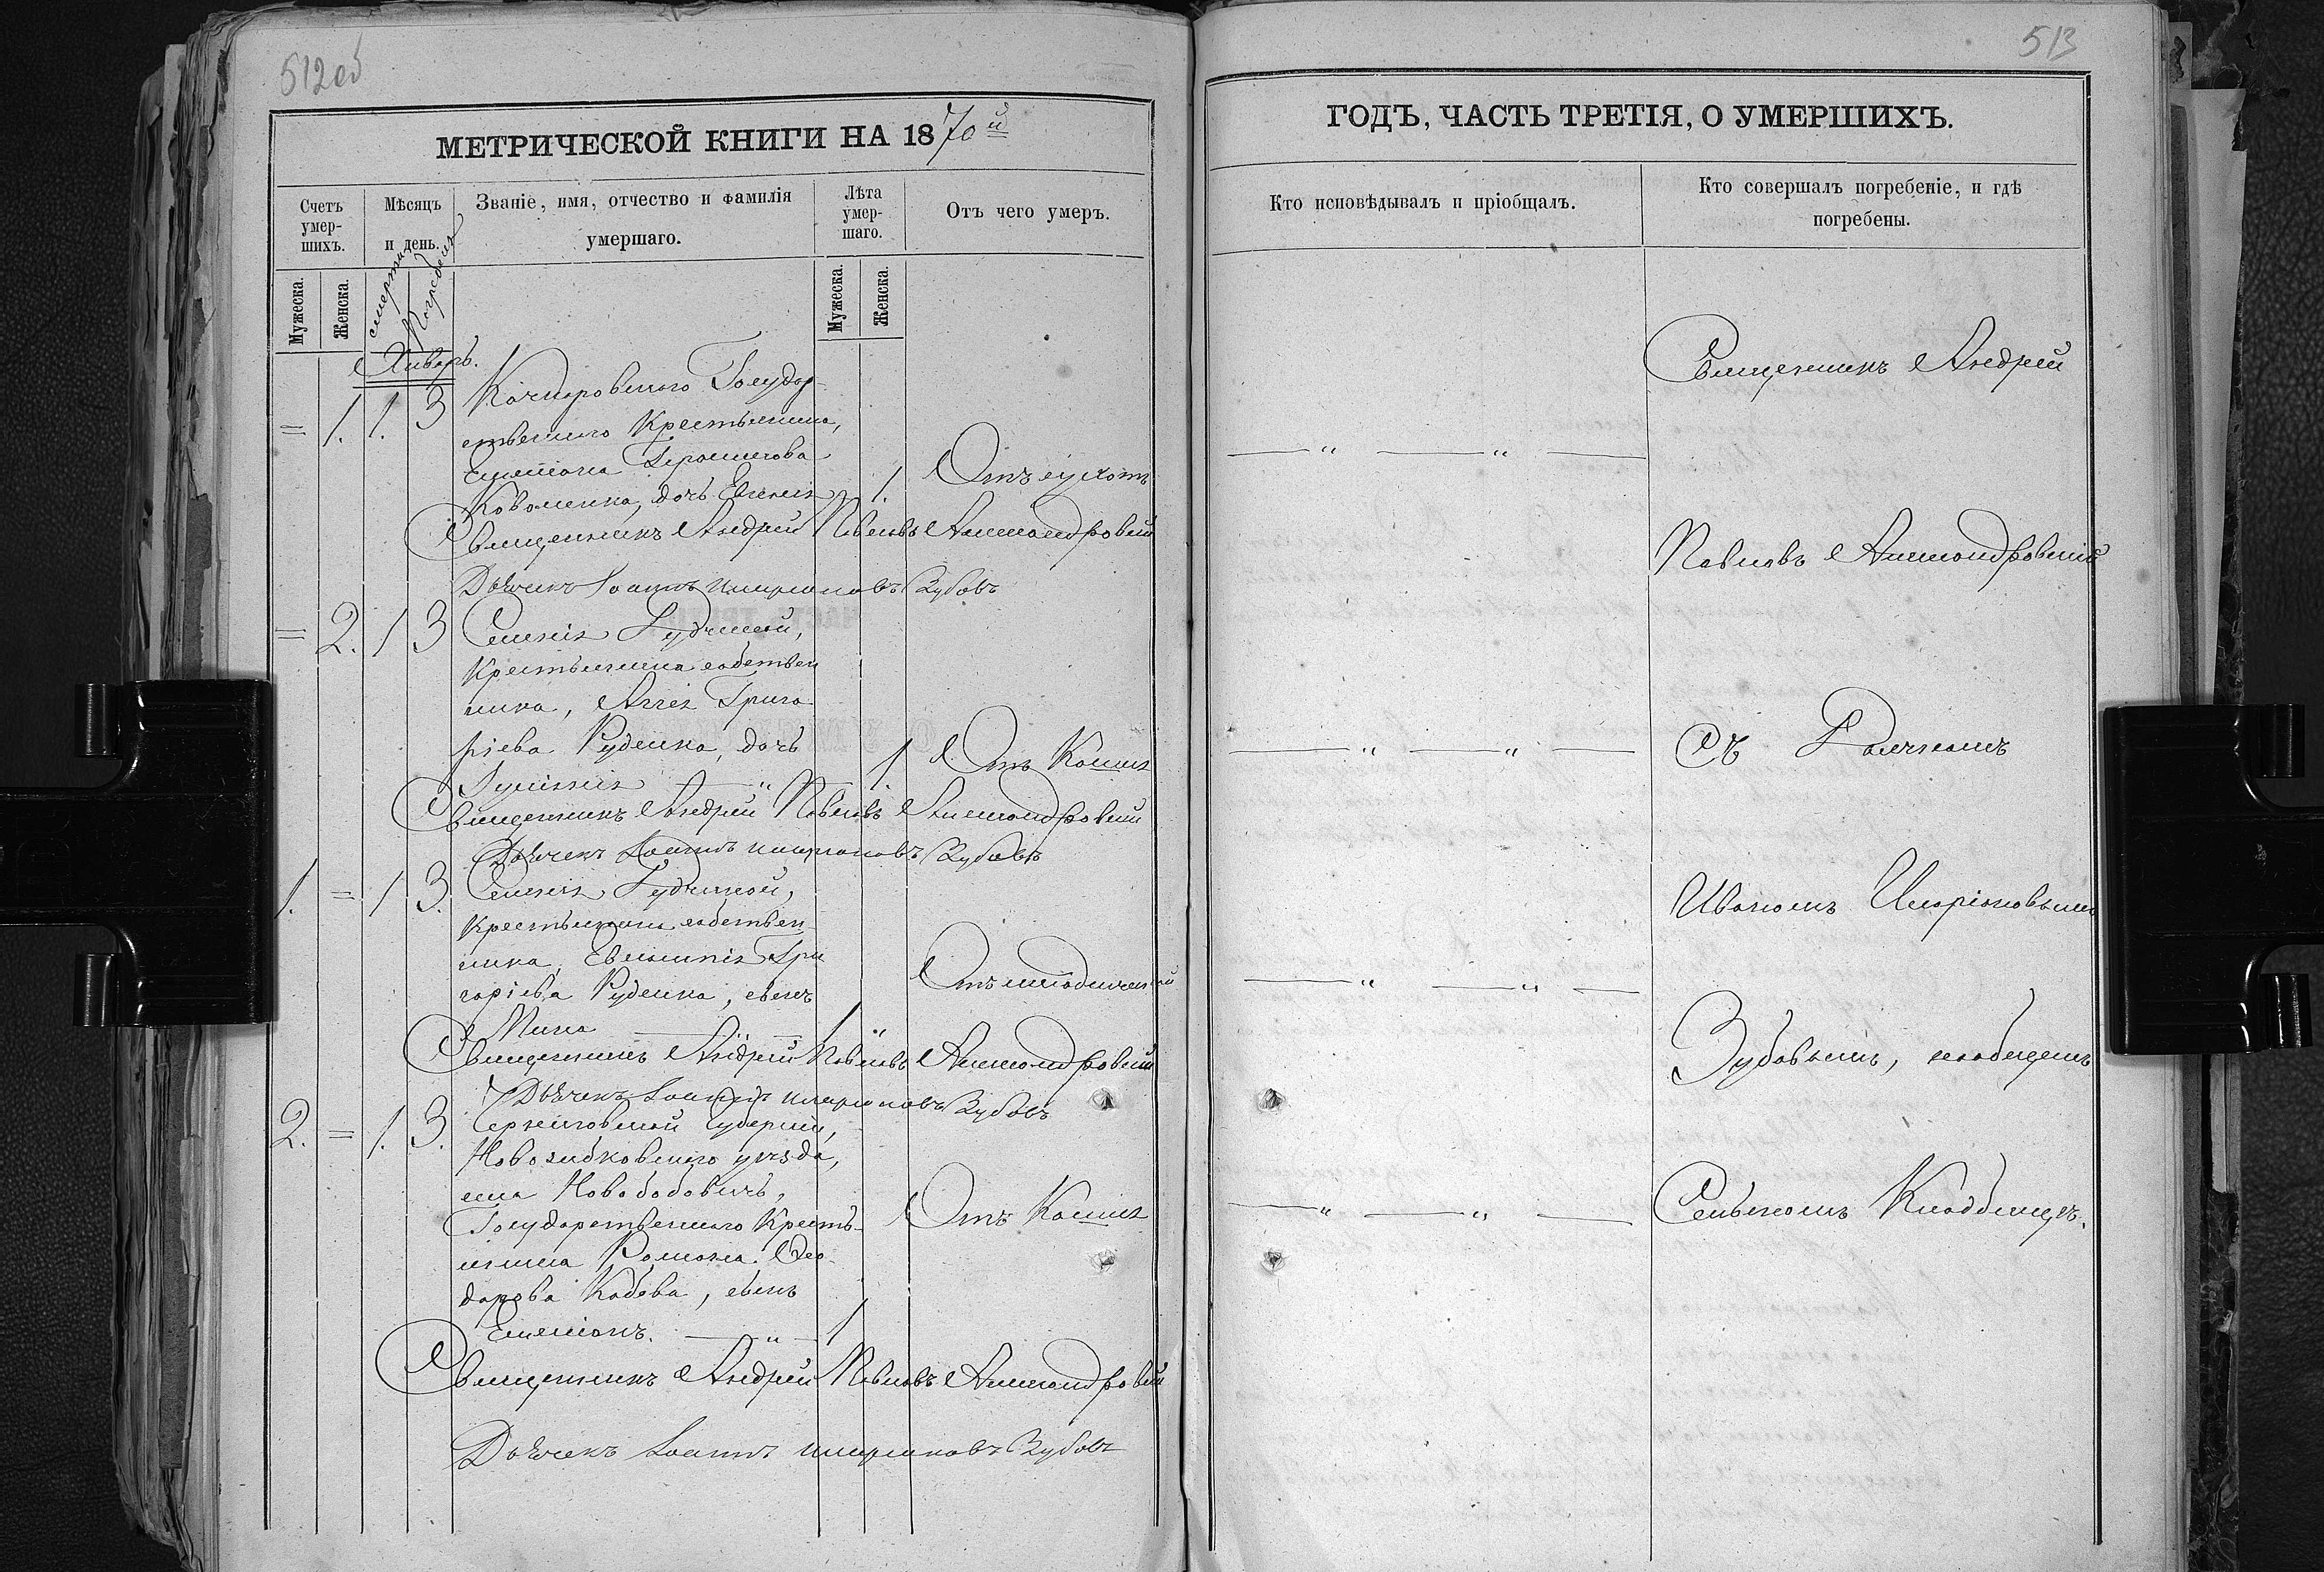 512 об
МЕТРИЧЕСКОЙ КНИГИ НА 1870й
Счетъ умер-шихъ.
Мѣсяцъ и день.
Званіе, имя, отчество и фамилія умершаго.
Лѣта умер-шаго.
Отъ чего умеръ.
Мужеска.
Женска.
смерти
Погребен
Мужеска.
Женска.
Январь.
= 1. 1. 3
Государ-
ственнаго Крестьянина,
Коваленка, дочь Евгенія 1. Отъ сухот
Священникъ Андрей Павловъ Александровскій
Дьячекъ Іоаннъ Иларіоновъ Зубовъ
= 2. 1 3 Селенія
Крестьянина собствен
ника, Григо
ріева Руденка, дочь
1. Отъ Кашля
Священникъ Андрей Павловъ Александровскій
Дьячекъ Іоаннъ Иларіоновъ Зубовъ
1. = 1 3. Селенія
Крестьянина собствен-
ника, Евлампія Гри
горіева Руденка, сынъ
Мина 1
Священникъ Андрей Павловъ Александровскій
Дьячекъ Іоаннъ Иларіоновъ Зубовъ
2. = 1. 3. Черниговской Губерніи,
Новозыбковскаго уѣзда,
Новобобовичъ,
Государственнаго Кресть-
янина Романа Ѳео-
дорова Кобева, сынъ
Отъ Кашля
Емеліанъ. 1
Священникъ Андрей Павловъ Александровскій
Дьячекъ Іоаннъ Иларіоновъ Зубовъ
513
ГОДЪ, ЧАСТЬ ТРЕТІЯ, О УМЕРШИХЪ.
Кто исповѣдывалъ и пріобщалъ.
Кто совершалъ погребеніе, и гдѣ погребены.
Священникъ Андрей
Павловъ Александровскій
съ Дьячкомъ
Иваномъ Иларіоновымъ
Зубовымъ, на общемъ
Сельскомъ Кладбищѣ.